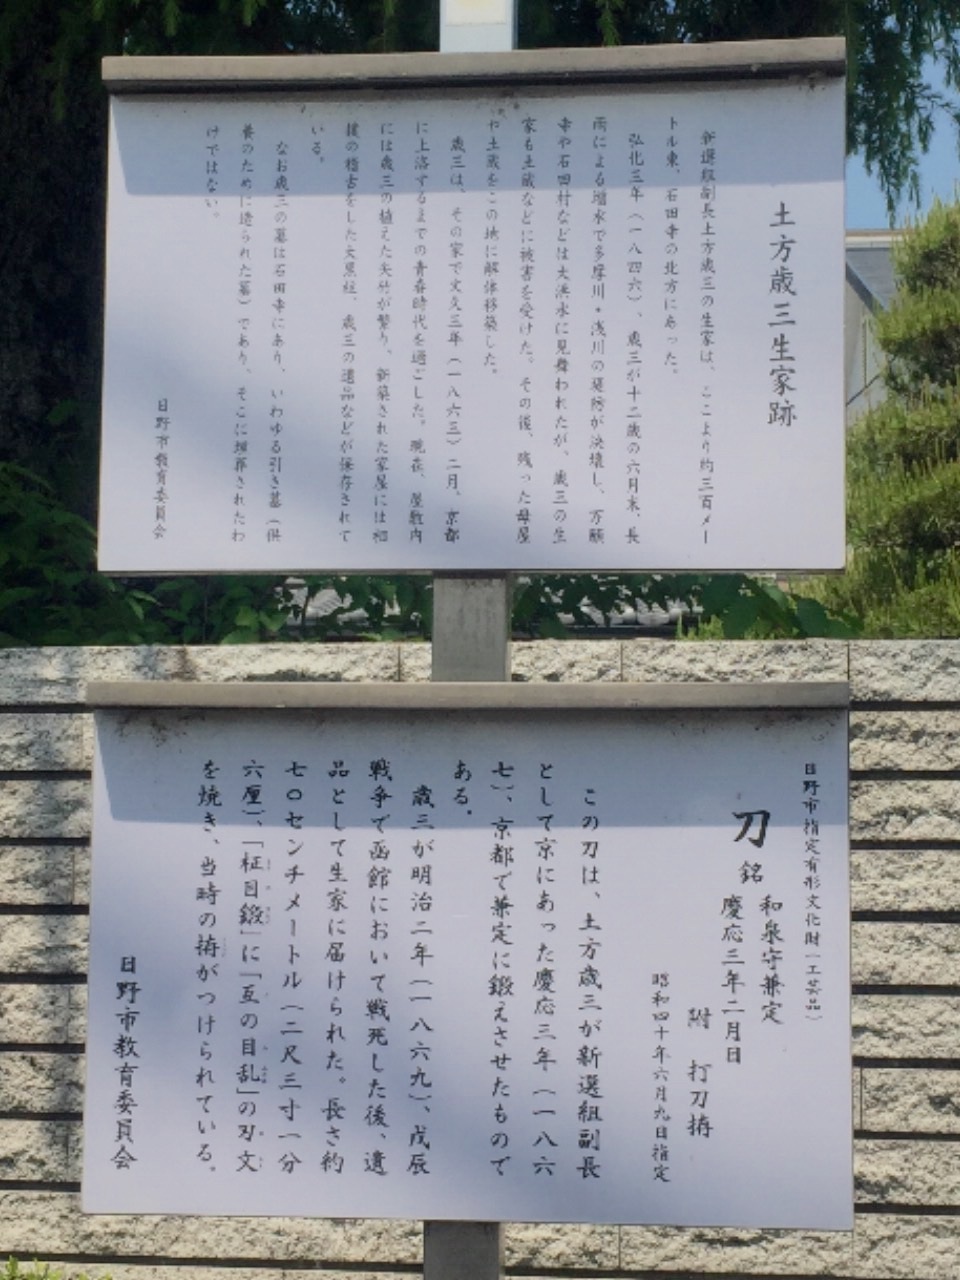 土方歳三生家跡
新選組副長土方歳三の生家は、ここより約三百メー
トル東、石田寺の北方にあった。
弘化三年（一八四六）、歳三が十二歳の六月末、長
雨による増水で多摩川・浅川の堤防が決壊し、万願
寺や石田村などは大洪水に見舞われたが、歳三の生
家も土蔵などに被害を受けた。その後、残った母屋
や土蔵をこの地に解体移築した。
歳三は、その家で文久三年（一八六三）二月、京都
に上洛するまでの青春時代を過ごした。現在、屋敷内
には歳三の植えた矢竹が繁り、新築された家屋には相
撲の稽古をした大黒柱、歳三の遺品などが保存されて
いる。
なお歳三の墓は石田寺にあり、いわゆる引き墓（供
養のために造られた墓）であり、そこに埋葬されたわ
けではない。
日野市教育委員会
日野市指定有形文化財（工芸品）
刀 銘 和泉守兼定
慶応三年二月日
附 打刀拵
昭和四十年六月九日指定
この刀は、土方歳三が新選組副長
として京にあった慶応三年（一八六
七）、京都で兼定に鍛えさせたもので
ある。
歳三が明治二年（一八六九）、戊辰
戦争で函館において戦死した後、遺
品として生家に届けられた。長さ約
七〇センチメートル（二尺三寸一分
六厘）、「柾目鍛」に「互の目乱」の刃文
を焼き、当時の拵がつけられている。
日野市教育委員会